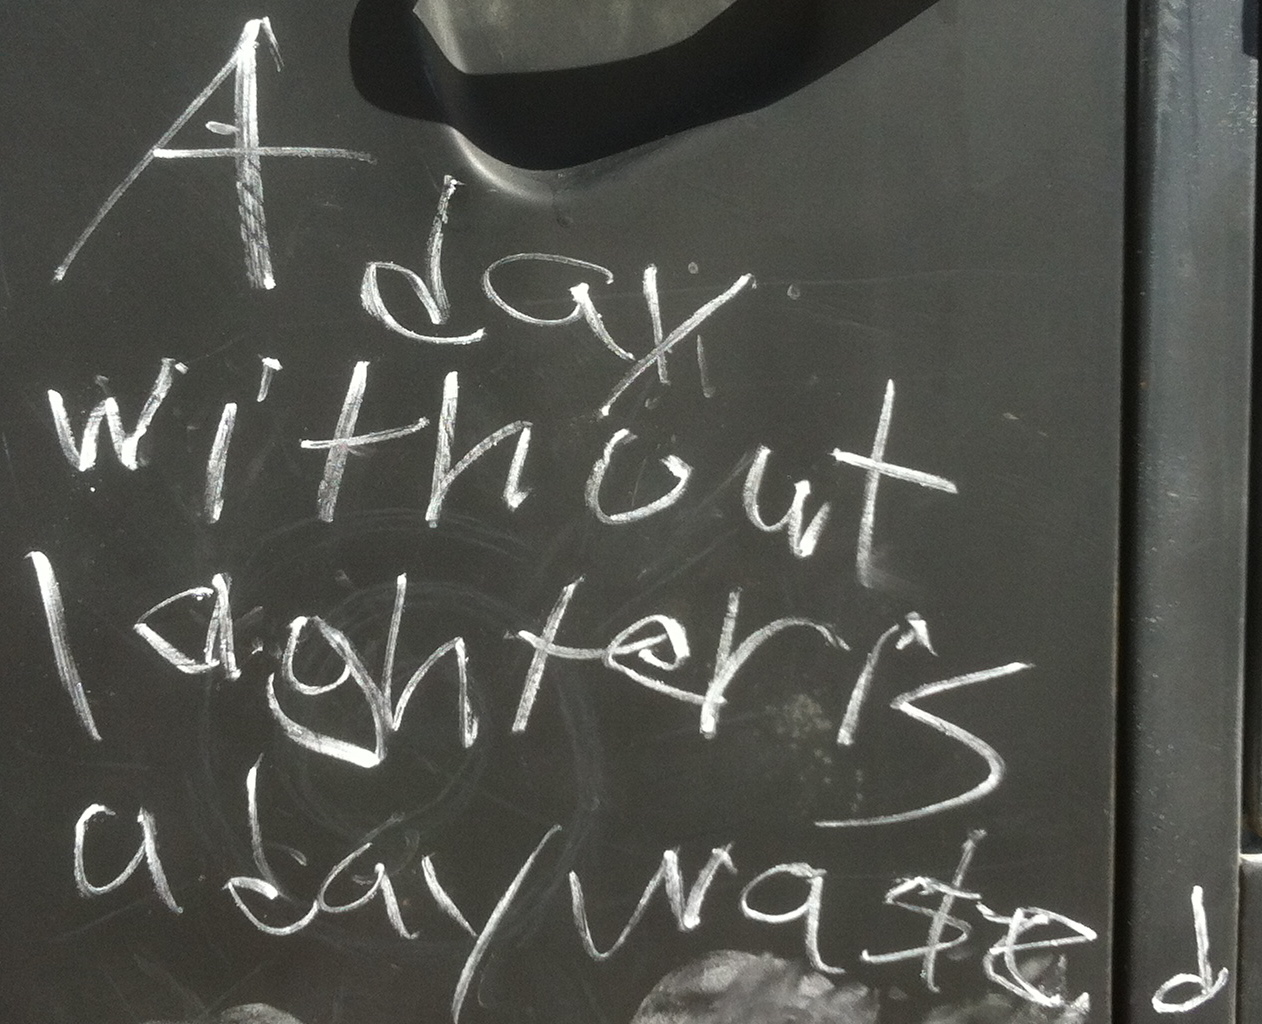 A day
without
laghter is
a day wasted